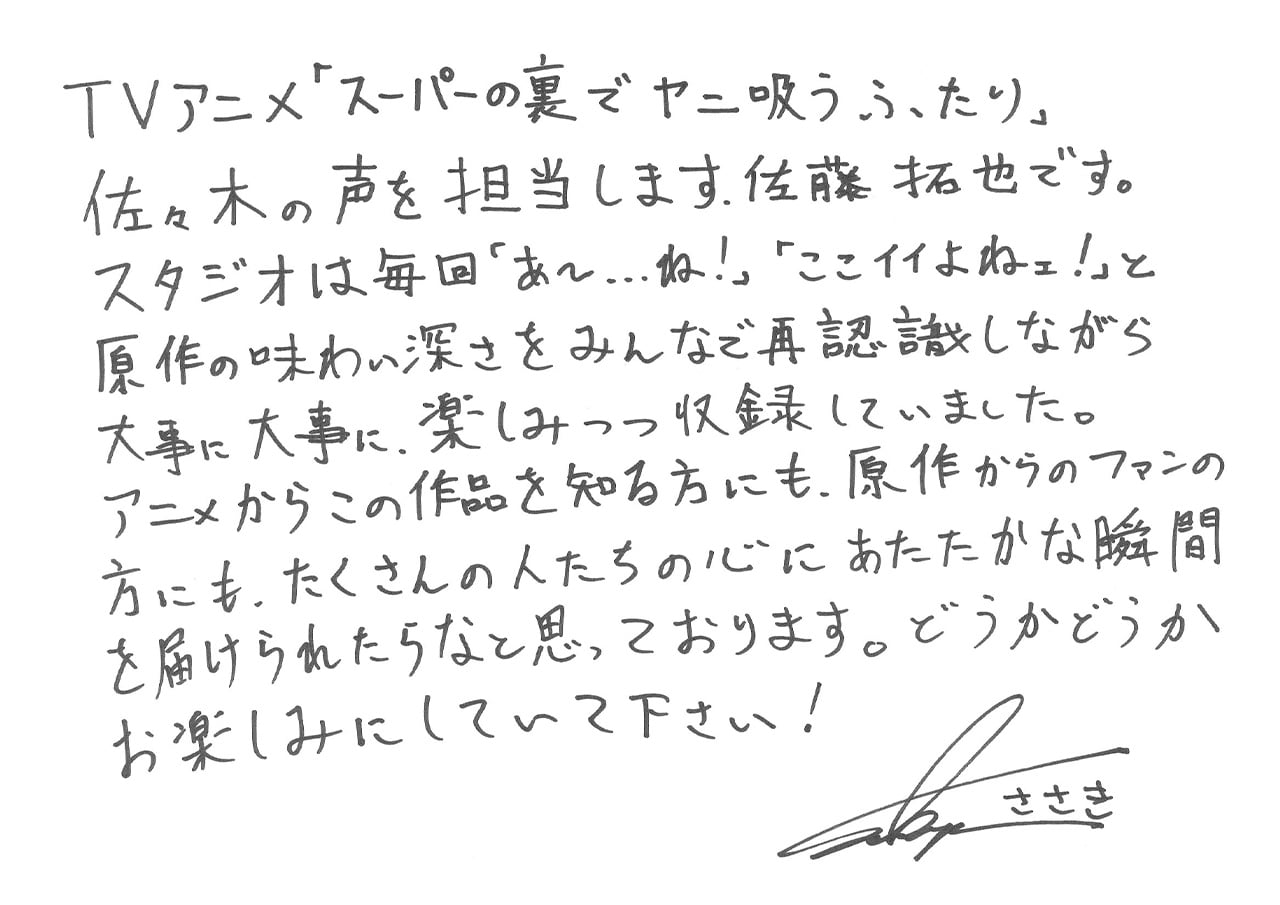 TVアニメ「スーパーの裏でヤニ吸うふたり」
佐々木の声を担当します、佐藤拓也です。
スタジオは毎回「あ〜…ね!」「ここイイよねェ!」と
原作の味わい深さをみんなで再認識しながら
大事に大事に、楽しみつつ収録していました。
アニメからこの作品を知る方にも、原作からのファンの
方にも、たくさんの人たちの心にあたたかな瞬間
を届けられたらなと思っております。どうかどうか
お楽しみにしていて下さい!
ささき